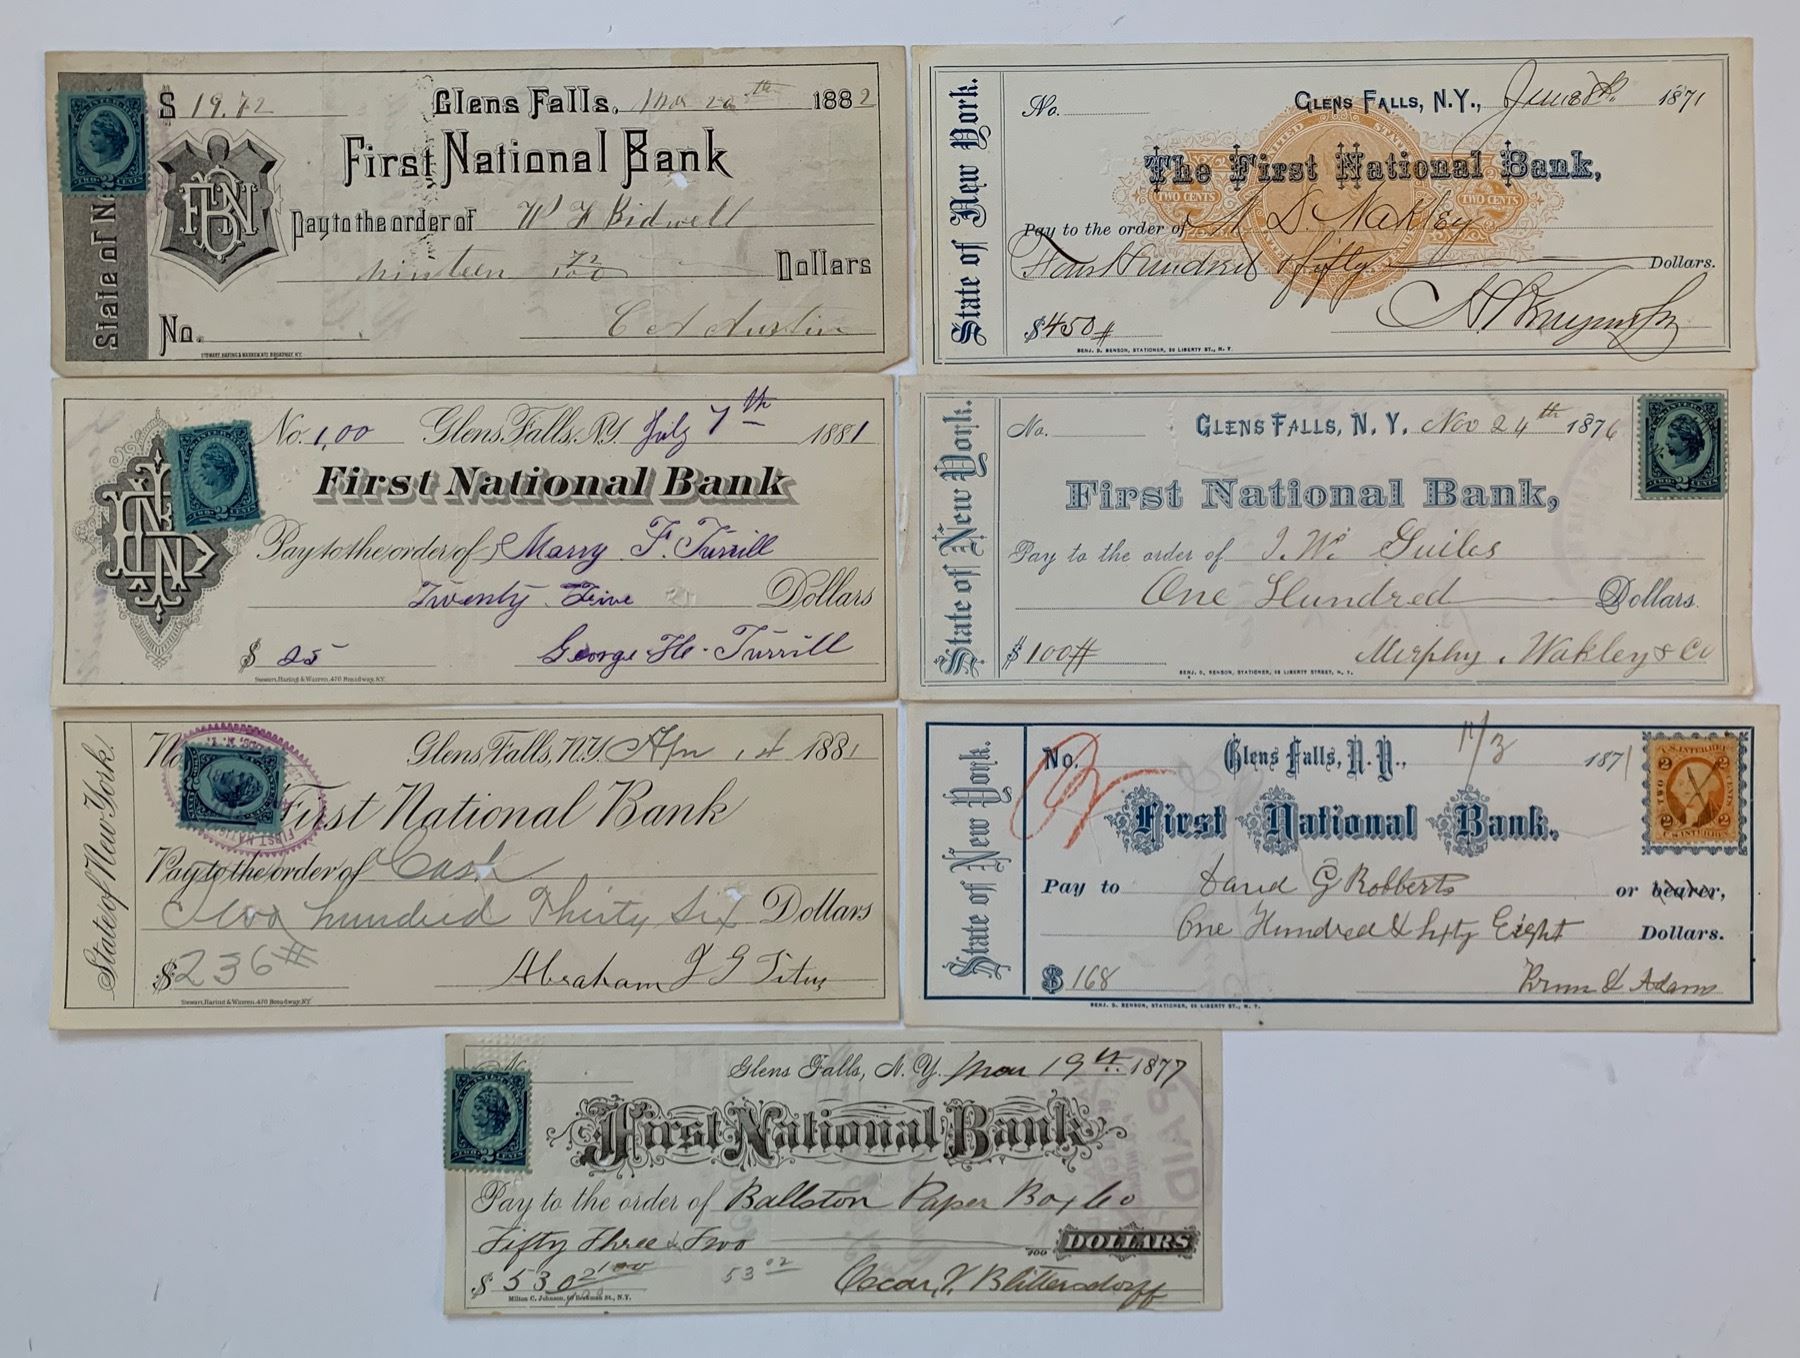 $ 19.72 Glens Falls, 20th 1882
First National Bank
FNB
Pay to the order of W F Bidwell
nineteen 72/100 Dollars
C A Austin
No.
State of N
STEWART, HARING & WARREN, 470 BROADWAY, NY.
TWO 2 CENTS
State of New York.
No. GLENS FALLS, N.Y., June 1871
The First National Bank,
UNITED STATES
TWO CENTS TWO CENTS
Pay to the order of D. Wakley
Four Hundred & fifty Dollars.
$450#
BENJ. D. BENSON, STATIONER, 50 LIBERTY ST., N. Y.
No. 1,00 Glens Falls, N.Y. July 7th 1881
First National Bank
Pay to the order of Marry F. Turrill
Twenty Five Dollars
$ 25 George H. Turrill
Stewart, Haring & Warren, 470 Broadway, N.Y.
2 CENTS
State of New York.
No. GLENS FALLS, N. Y. Nov 24th 1876
First National Bank,
Pay to the order of I. W. Guiles
One Hundred Dollars.
$ 100# Murphy, Wakley & Co
BENJ. D. BENSON, STATIONER, 50 LIBERTY STREET, N. Y.
TWO 2 CENTS
State of New York.
No Glens Falls, N.Y. Apr 14 1881
First National Bank
Pay to the order of Cash
Two hundred Thirty Six Dollars
$236# Abraham J G Titus
Stewart, Haring & Warren, 470 Broadway, N.Y.
FIRST NATIONAL
State of New York.
No. Glens Falls, N. Y., 11/3 1871
First National Bank,
Pay to David G Robberts or bearer,
One Hundred & fifty Eight Dollars.
$ 168 & Adams
BENJ. D. BENSON, STATIONER, 50 LIBERTY ST., N. Y.
U.S. INTER. REV.
2 TWO CENTS 2
Glens Falls, N. Y. Mar 19th 1877
First National Bank
Pay to the order of Ballston Paper Box Co
Fifty Three & Two 100 DOLLARS
$ 53 02/100 53 02 Oscar V. Blittersdorff
Milton C. Johnson, Beekman St., N.Y.
TWO 2 CENTS
PAID